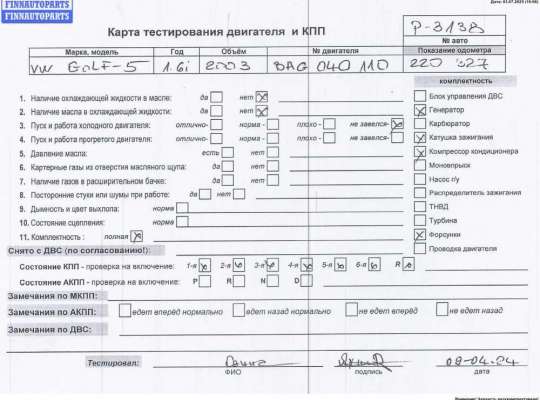 FINNAUTOPARTS
FINNAUTOPARTS
Дата: 03.07.2025
Карта тестирования двигателя и КПП
P-3138
№ авто
Марка, модель Год Объём № двигателя Показание одометра
VW GOLF-5 1.6i 2003 BAG 040 110 220 327
комплектность
1. Наличие охлаждающей жидкости в масле: да нет
2. Наличие масла в охлаждающей жидкости: да нет
3. Пуск и работа холодного двигателя: отлично- норма - плохо - не завелся-
4. Пуск и работа прогретого двигателя: отлично- норма - плохо - не завелся-
5. Давление масла: есть нет
6. Картерные газы из отверстия масляного щупа: да нет
7. Наличие газов в расширительном бачке: да нет
8. Посторонние стуки или шумы при работе: да нет
9. Дымность и цвет выхлопа: норма
10. Состояние сцепления: норма
11. Комплектность : полная
Блок управления ДВС
Генератор
Карбюратор
Катушка зажигания
Компрессор кондиционера
Моновпрыск
Насос г/у
Распределитель зажигания
ТНВД
Турбина
Форсунки
Проводка двигателя
Снято с ДВС (по согласованию!):
Состояние КПП - проверка на включение: 1-я 2-я 3-я 4-я 5-я 6-я R
Состояние АКПП - проверка на включение: P R N D
Замечания по МКПП:
Замечания по АКПП: едет вперёд нормально едет назад нормально не едет вперёд не едет назад
Замечания по ДВС:
Тестировал: 09-04-24
ФИО подпись дата